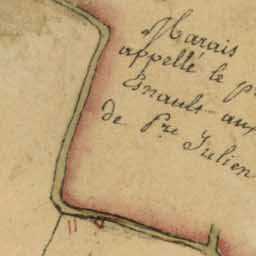 Marais
appellé le p
Esnault aux
de Pre Julien